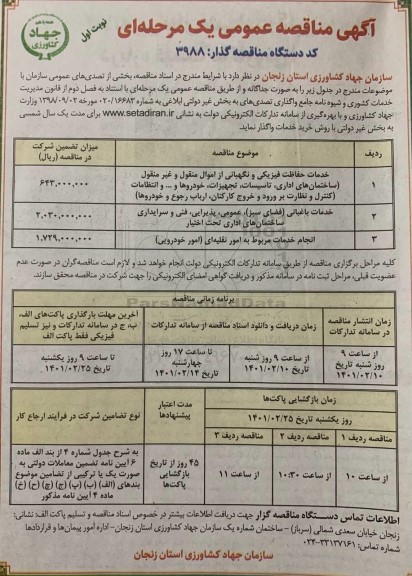 آگهی مناقصه عمومی یک مرحله‌ای
نوبت اول
جهاد کشاورزی
کد دستگاه مناقصه گذار: ۳۹۸۸
سازمان جهاد کشاورزی استان زنجان در نظر دارد با شرایط مندرج در اسناد مناقصه، بخشی از تصدی‌های عمومی سازمان با
موضوعات مندرج در جدول زیر را به صورت جداگانه و از طریق مناقصه عمومی یک مرحله‌ای با استناد به فصل دوم از قانون مدیریت
خدمات کشوری و شیوه نامه جامع واگذاری تصدی‌های به بخش غیر دولتی ابلاغی به شماره ۰۲۰/۱۶۶۸۳ مورخه ۱۳۹۸/۰۹/۰۲ وزارت
جهاد کشاورزی و با بهره‌گیری از سامانه تدارکات الکترونیکی دولت به نشانی www.setadiran.ir برای مدت یک سال شمسی
به بخش غیر دولتی با روش خرید خدمات واگذار نماید.
ردیف موضوع مناقصه میزان تضمین شرکت در مناقصه (ریال)
۱ خدمات حفاظت فیزیکی و نگهبانی از اموال منقول و غیر منقول ۶۴۳,۰۰۰,۰۰۰
(ساختمان‌های اداری، تاسیسات، تجهیزات، خودروها و ... و انتظامات
(کنترل و نظارت بر ورود و خروج کارکنان، ارباب رجوع و خودروها)
۲ خدمات باغبانی (فضای سبز)، عمومی، پذیرایی، فنی و سرایداری ۲,۰۳۰,۰۰۰,۰۰۰
ساختمان‌های اداری تحت اختیار
۳ انجام خدمات مربوط به امور نقلیه‌ای (امور خودرویی) ۱,۷۲۹,۰۰۰,۰۰۰
کلیه مراحل برگزاری مناقصه از طریق سامانه تدارکات الکترونیکی دولت انجام خواهد شد و لازم است مناقصه‌گران در صورت عدم
عضویت قبلی، مراحل ثبت نامه در سامانه مذکور و دریافت گواهی امضای الکترونیکی را جهت شرکت در مناقصه محقق سازند.
برنامه زمانی مناقصه
زمان انتشار مناقصه در سامانه تدارکات
زمان دریافت و دانلود اسناد مناقصه از سامانه تدارکات
آخرین مهلت بارگذاری پاکت‌های الف، ب، ج در سامانه تدارکات و نیز تسلیم فیزیکی فقط پاکت الف
از ساعت ۹ روز شنبه تاریخ ۱۴۰۱/۰۲/۱۰
از ساعت ۹ روز شنبه تاریخ ۱۴۰۱/۰۲/۱۰
تا ساعت ۱۷ روز چهارشنبه تاریخ ۱۴۰۱/۰۲/۱۴
تا ساعت ۹ روز یکشنبه تاریخ ۱۴۰۱/۰۲/۲۵
زمان بازگشایی پاکت‌ها
روز یکشنبه تاریخ ۱۴۰۱/۰۲/۲۵
مدت اعتبار پیشنهادها
نوع تضامین شرکت در فرآیند ارجاع کار
مناقصه ردیف ۱ مناقصه ردیف ۲ مناقصه ردیف ۳
از ساعت ۱۰ از ساعت ۱۰:۳۰ از ساعت ۱۱
۴۵ روز از تاریخ بازگشایی پاکت‌ها
به شرح جدول شماره ۴ از بند الف ماده
۶ آیین نامه تضمین معاملات دولتی به
صورت یک یا ترکیبی از تضامین موضوع
بندهای (الف) (ب) (پ) (ج) (چ) (ح) (خ)
ماده ۴ آیین نامه مذکور
اطلاعات تماس دستگاه مناقصه گزار جهت دریافت اطلاعات بیشتر در خصوص اسناد مناقصه و تسلیم پاکت الف: نشانی:
زنجان خیابان سعدی شمالی (سرباز) - ساختمان شماره یک سازمان جهاد کشاورزی استان زنجان- اداره امور پیمان‌ها و قراردادها
شماره تماس: ۰۲۴-۳۳۱۳۷۱۶۱
سازمان جهاد کشاورزی استان زنجان